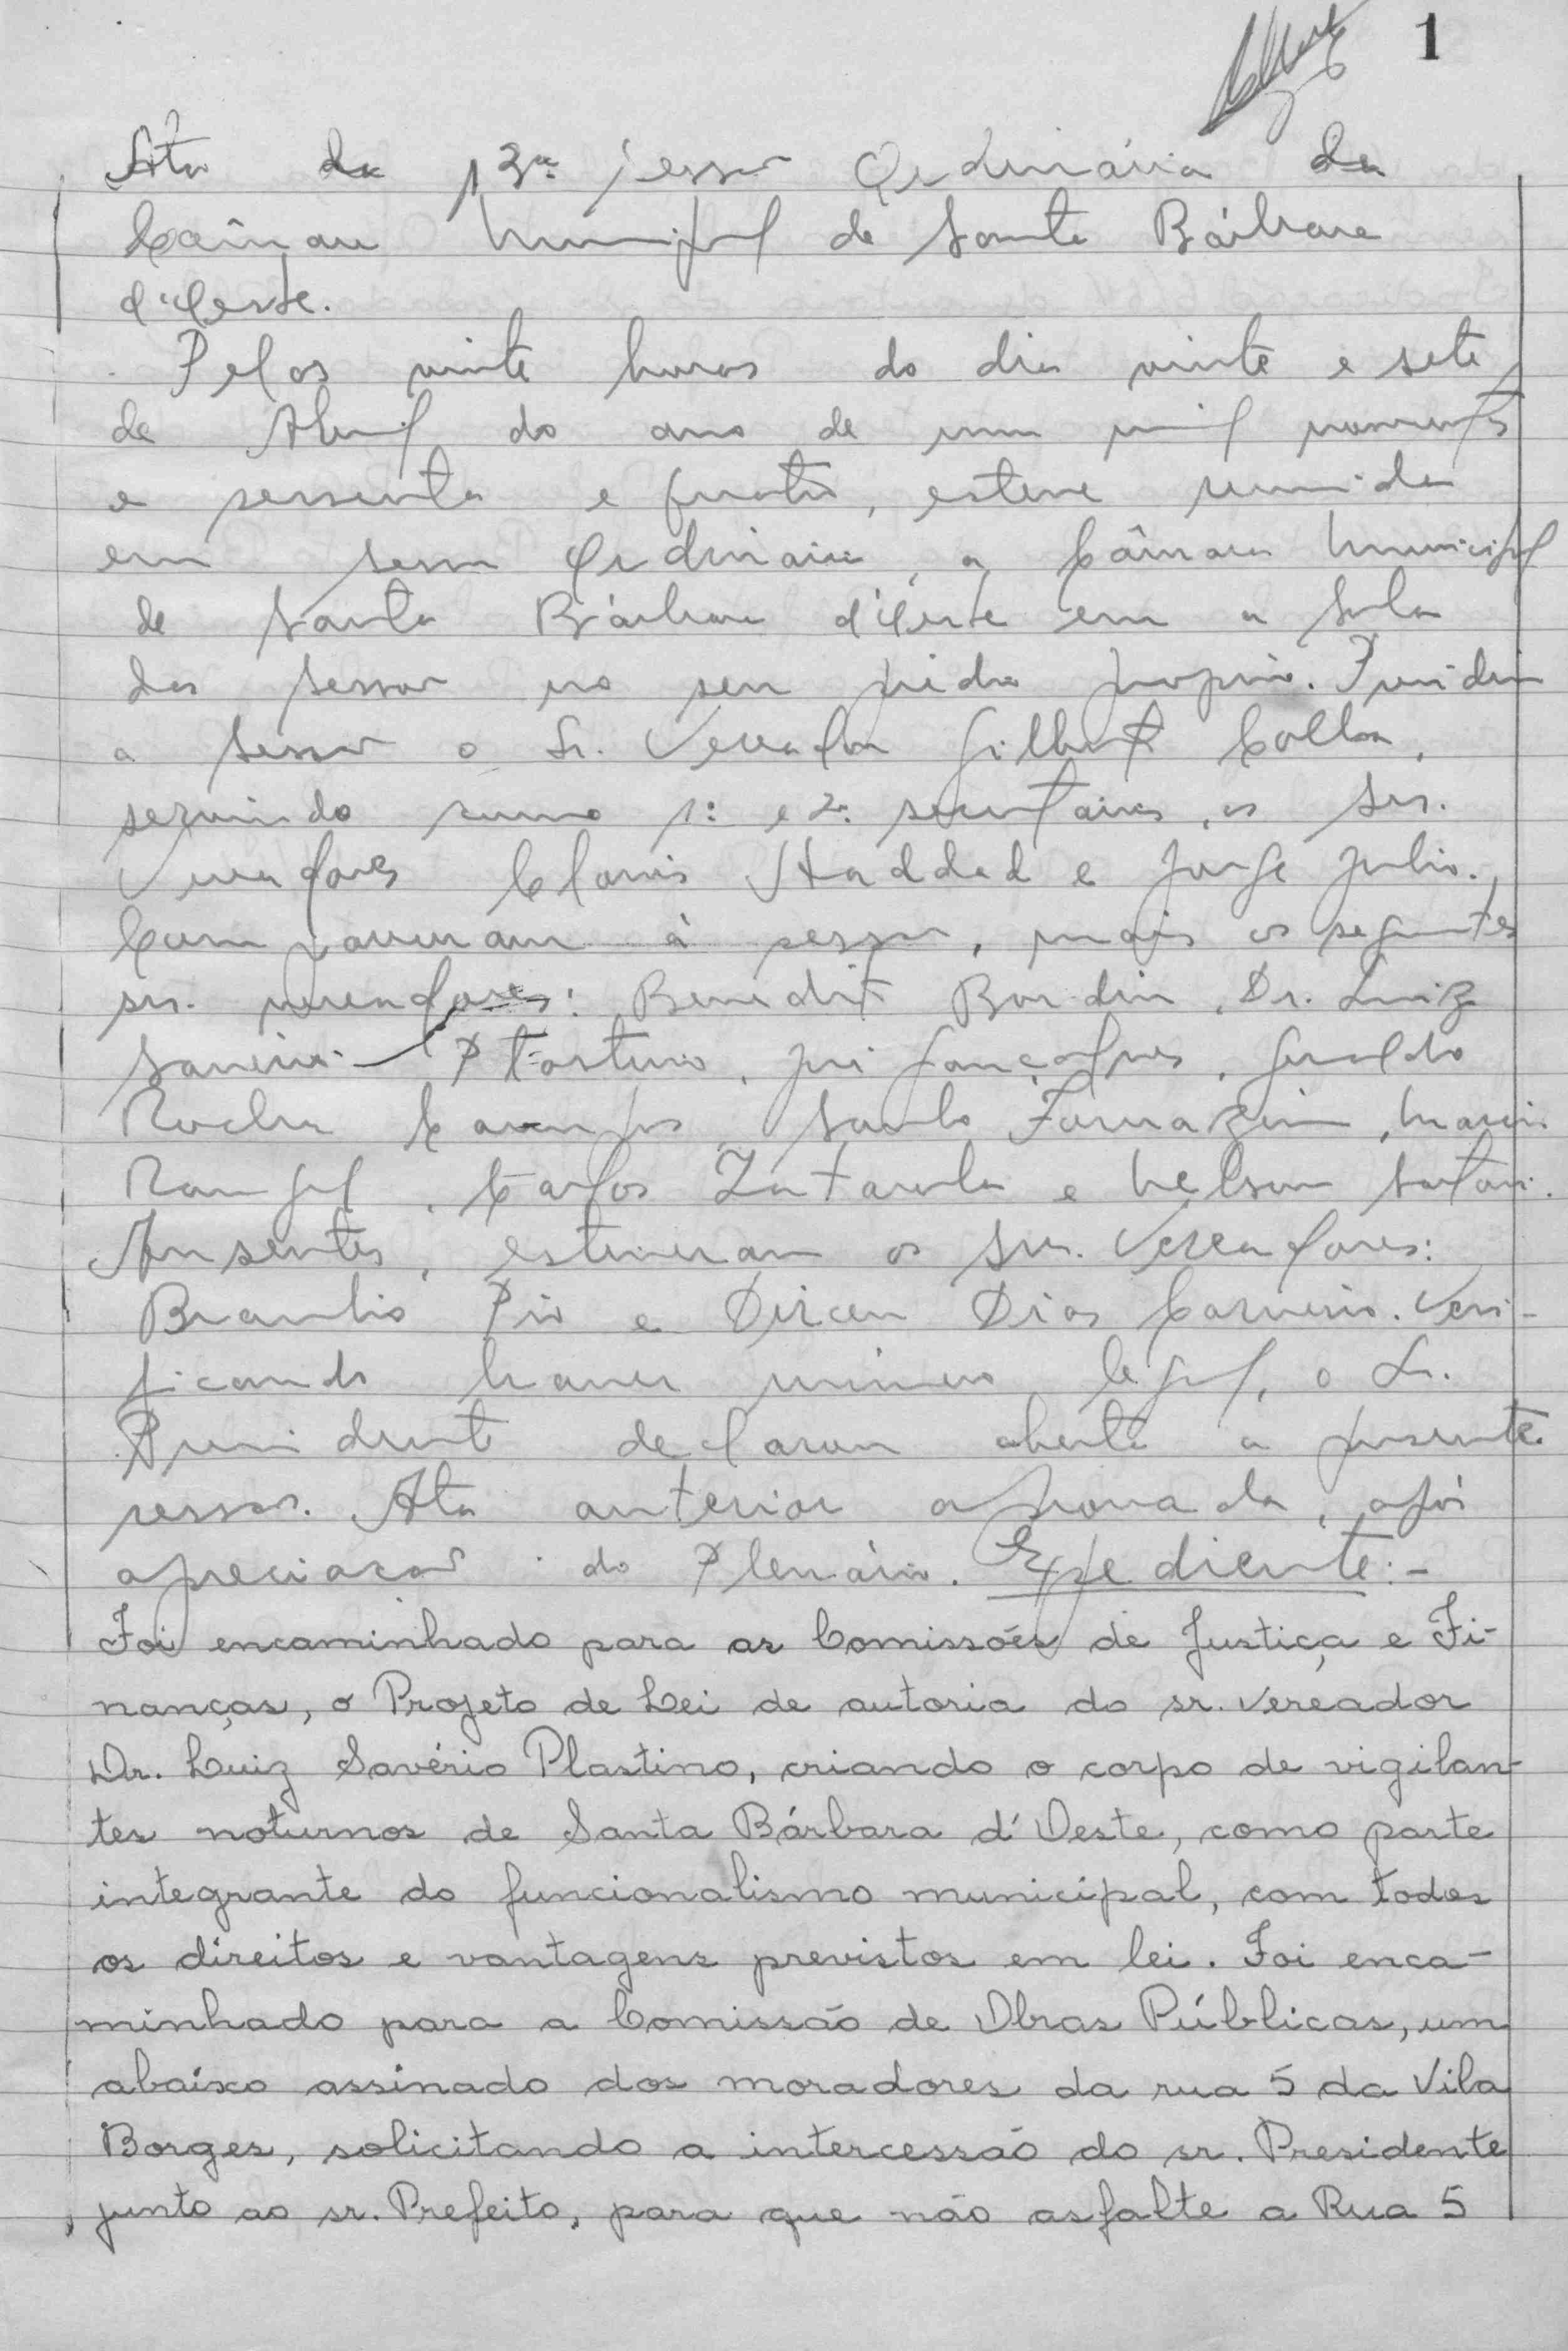 1
Ata da 13ª sessão Ordinária da
Câmara Municipal de Santa Bárbara
d'Oeste.
Pelas vinte horas do dia vinte e sete
de Abril do ano de um mil novecentos
e sessenta e quatro, esteve reunida
em sessão Ordinária, a Câmara Municipal
de Santa Bárbara d'Oeste em a sala
das sessões no seu prédio próprio. Presidiu
a sessão o Sr. Vereador Gilberto Colla,
servindo como 1º e 2º secretários, os Srs.
Vereadores Clovis Haddad e Jorge Julio.
Compareceram à sessão, mais os seguintes
srs. vereadores: Benedito Bordin, Dr. Luiz
Savério Plastino, José Gonçalves, Geraldo
Rocha Campos, Santo Fornazin,
Rangel, Carlos e Nelson
Ausentes, estiveram os srs. Vereadores:
Braulio Pio e Dirceu Dias Carneiro. Veri-
ficando haver número legal, o Sr.
Presidente declarou aberta a presente
sessão. Ata anterior aprovada, após
apreciação do Plenário. Expediente:-
Foi encaminhado para as Comissões de Justiça e Fi-
nanças, o Projeto de Lei de autoria do sr. vereador
Dr. Luiz Savério Plastino, criando o corpo de vigilan-
tes noturnos de Santa Bárbara d'Oeste, como parte
integrante do funcionalismo municipal, com todos
os direitos e vantagens previstos em lei. Foi enca-
minhado para a Comissão de Obras Públicas, um
abaixo assinado dos moradores da rua 5 da Vila
Borges, solicitando a intercessão do sr. Presidente
junto ao sr. Prefeito, para que não asfalte a Rua 5